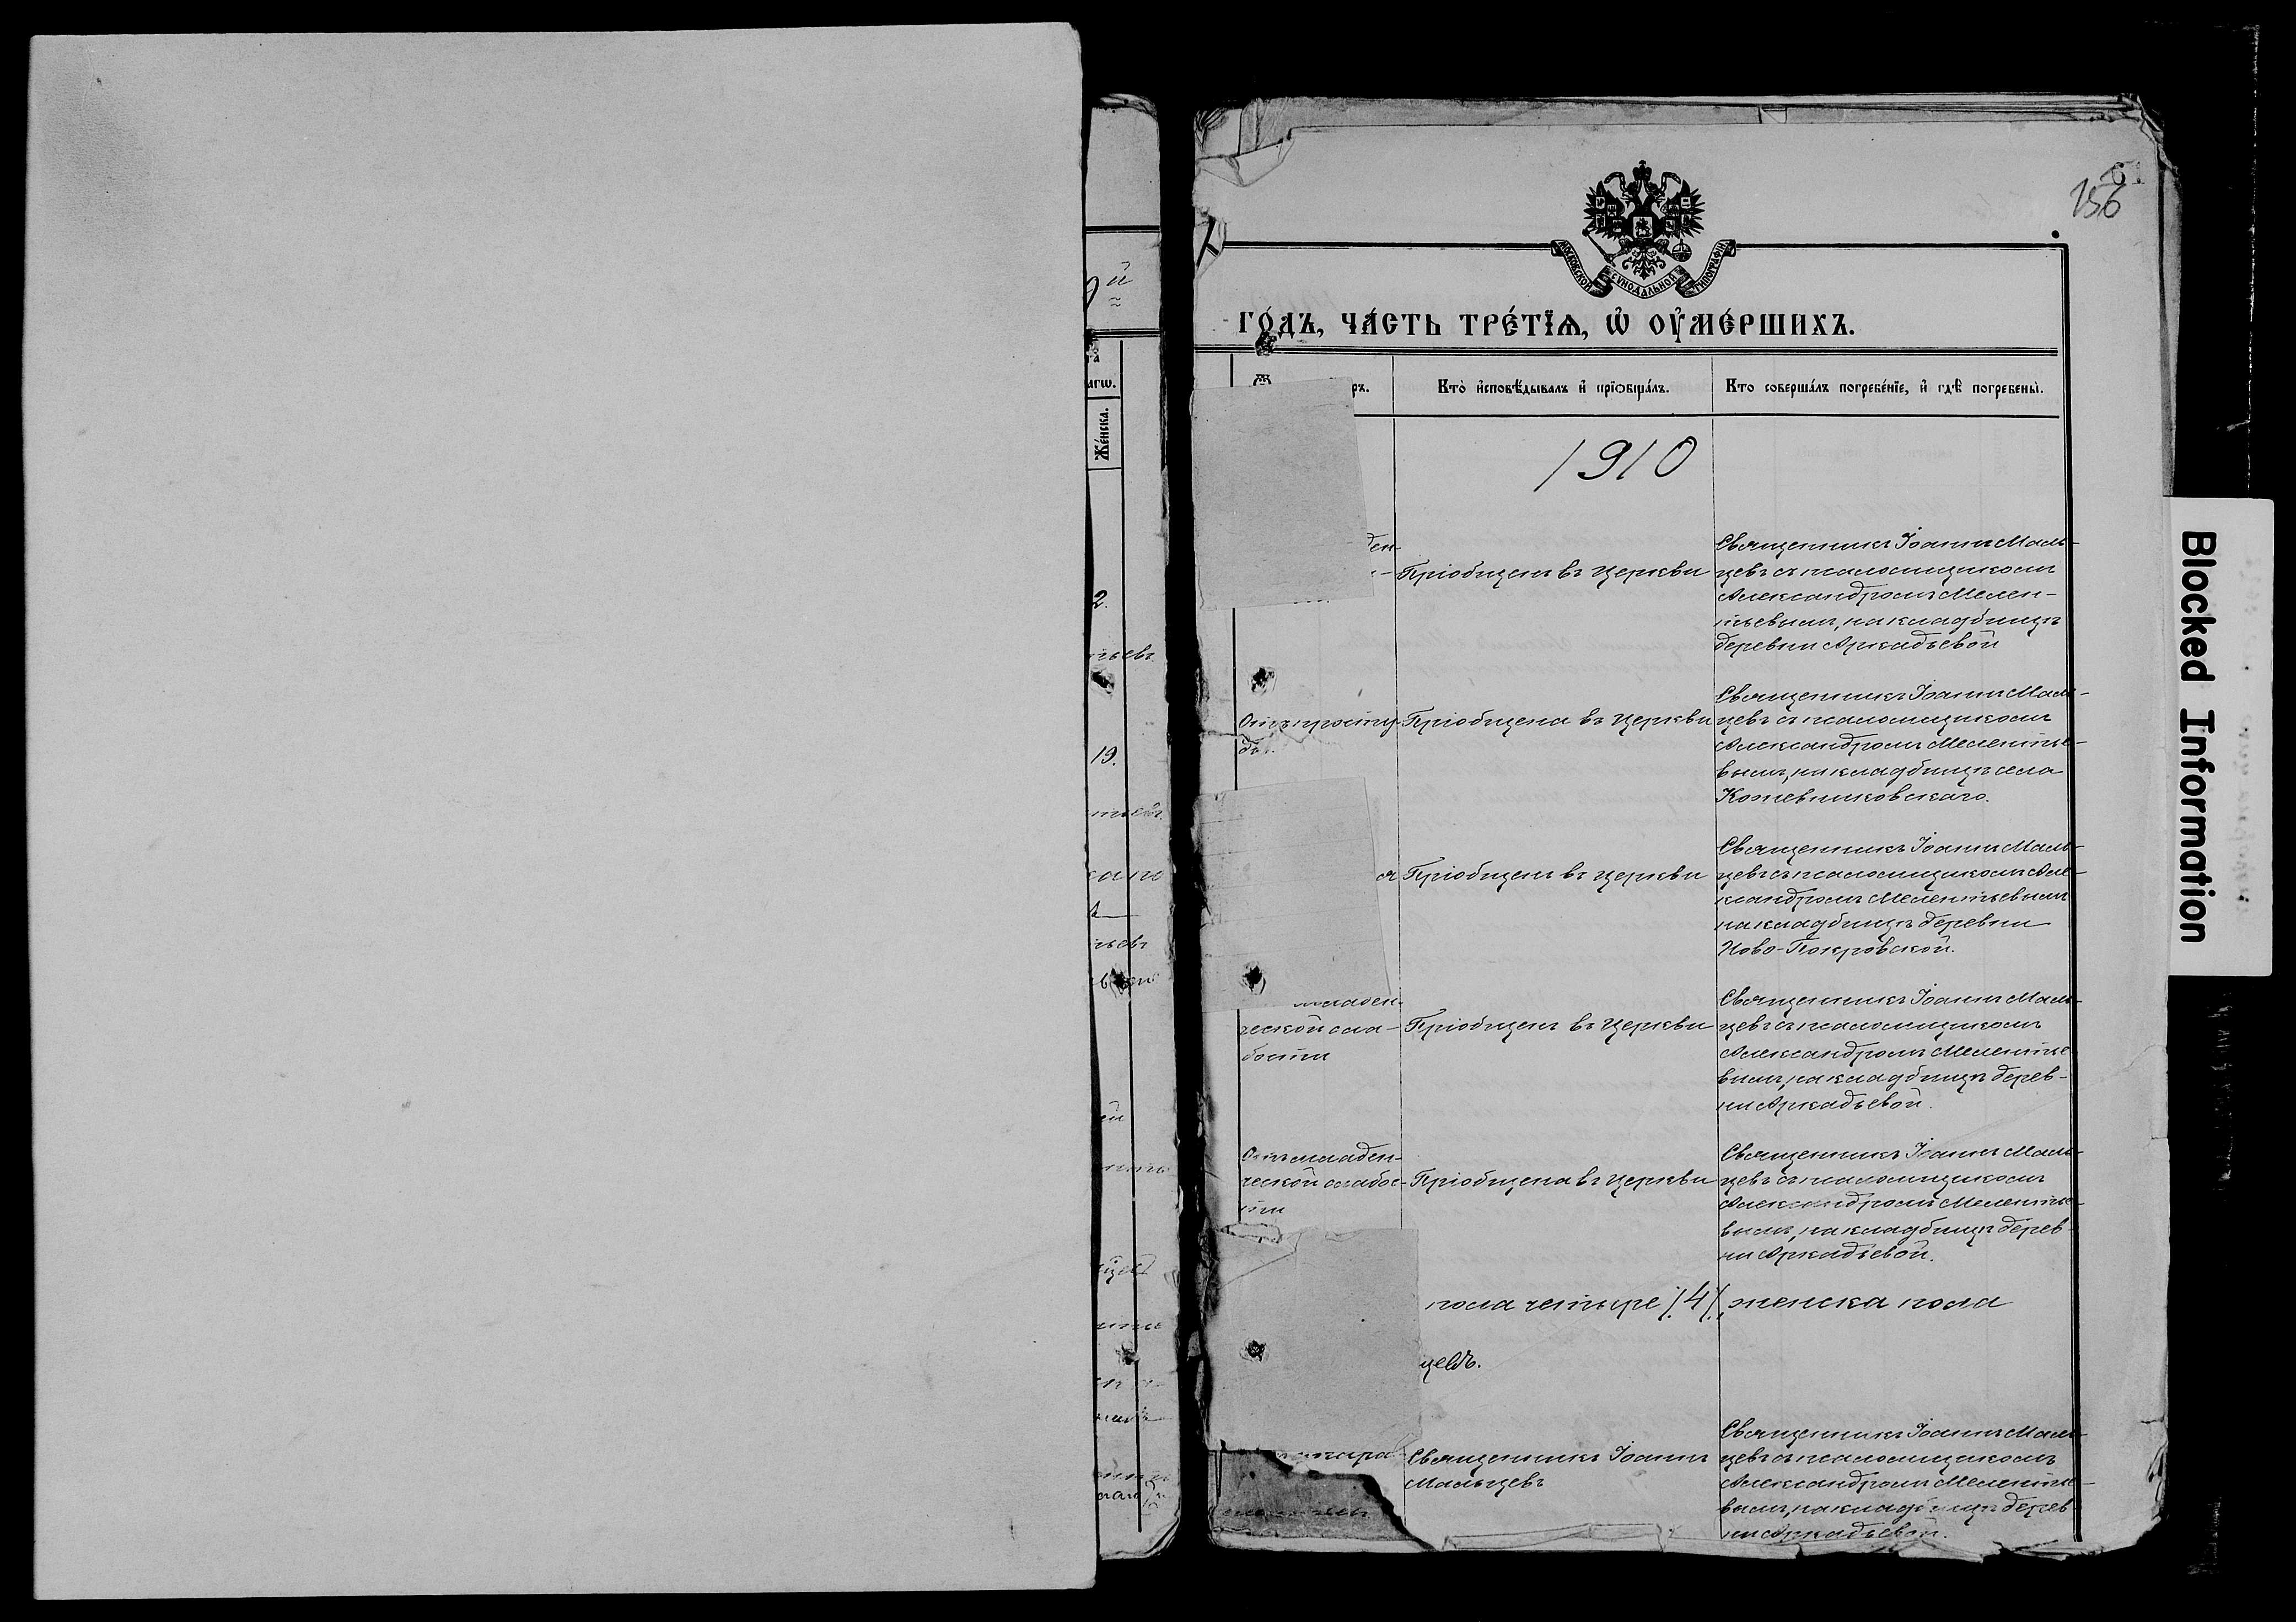 156
61
МОСКОВСКОЙ СѴНОДАЛЬНОЙ ТИПОГРАФІИ
го́дъ, ча́сть тре́тїѧ, ѡ҆ оу҆ме́ршихъ.
Ѿ
ръ.
Кто̀ и҆сповѣ́дывалъ и҆ прїѡбща́лъ.
Кто соверша́лъ погребе́нїе, и҆ гдѣ̀ погребены̀.
1910
ден-
Пріобщенъ въ церкви
Священникъ Іоаннъ Маль-
цевъ съ псаломщикомъ
Александромъ Мелен-
тьевымъ, на кладбищѣ
деревни Аркадьевой
Отъ просту-
ды.
Пріобщена въ церкви
Священникъ Іоаннъ Маль-
цевъ съ псаломщикомъ
Александромъ Мелентье-
вымъ, на кладбищѣ села
Кожевниковскаго.
я
Пріобщенъ въ церкви
Священникъ Іоаннъ Маль-
цевъ съ псаломщикомъ Але-
ксандромъ Мелентьевымъ
на кладбищѣ деревни
Ново-Покровской.
младен-
ческой сла-
бости
Пріобщенъ въ церкви
Священникъ Іоаннъ Маль-
цевъ съ псаломщикомъ
Александромъ Мелентье-
вымъ, на кладбищѣ дерев-
ни Аркадьевой.
Отъ младен-
ческой слабос-
ти
Пріобщена въ церкви
Священникъ Іоаннъ Маль-
цевъ съ псаломщикомъ
Александромъ Мелентье-
вымъ, на кладбищѣ дерев-
ни Аркадьевой.
пола четыре /4/, женска пола
цевъ.
Священникъ Іоаннъ
Мальцевъ
Священникъ Іоаннъ Маль-
цевъ съ псаломщикомъ
Александромъ Мелентье-
вымъ, на кладбищѣ дерев-
ни Аркадьевой.
й
агѡ.
Же́нска.
2.
тьевъ
19.
Blocked Information